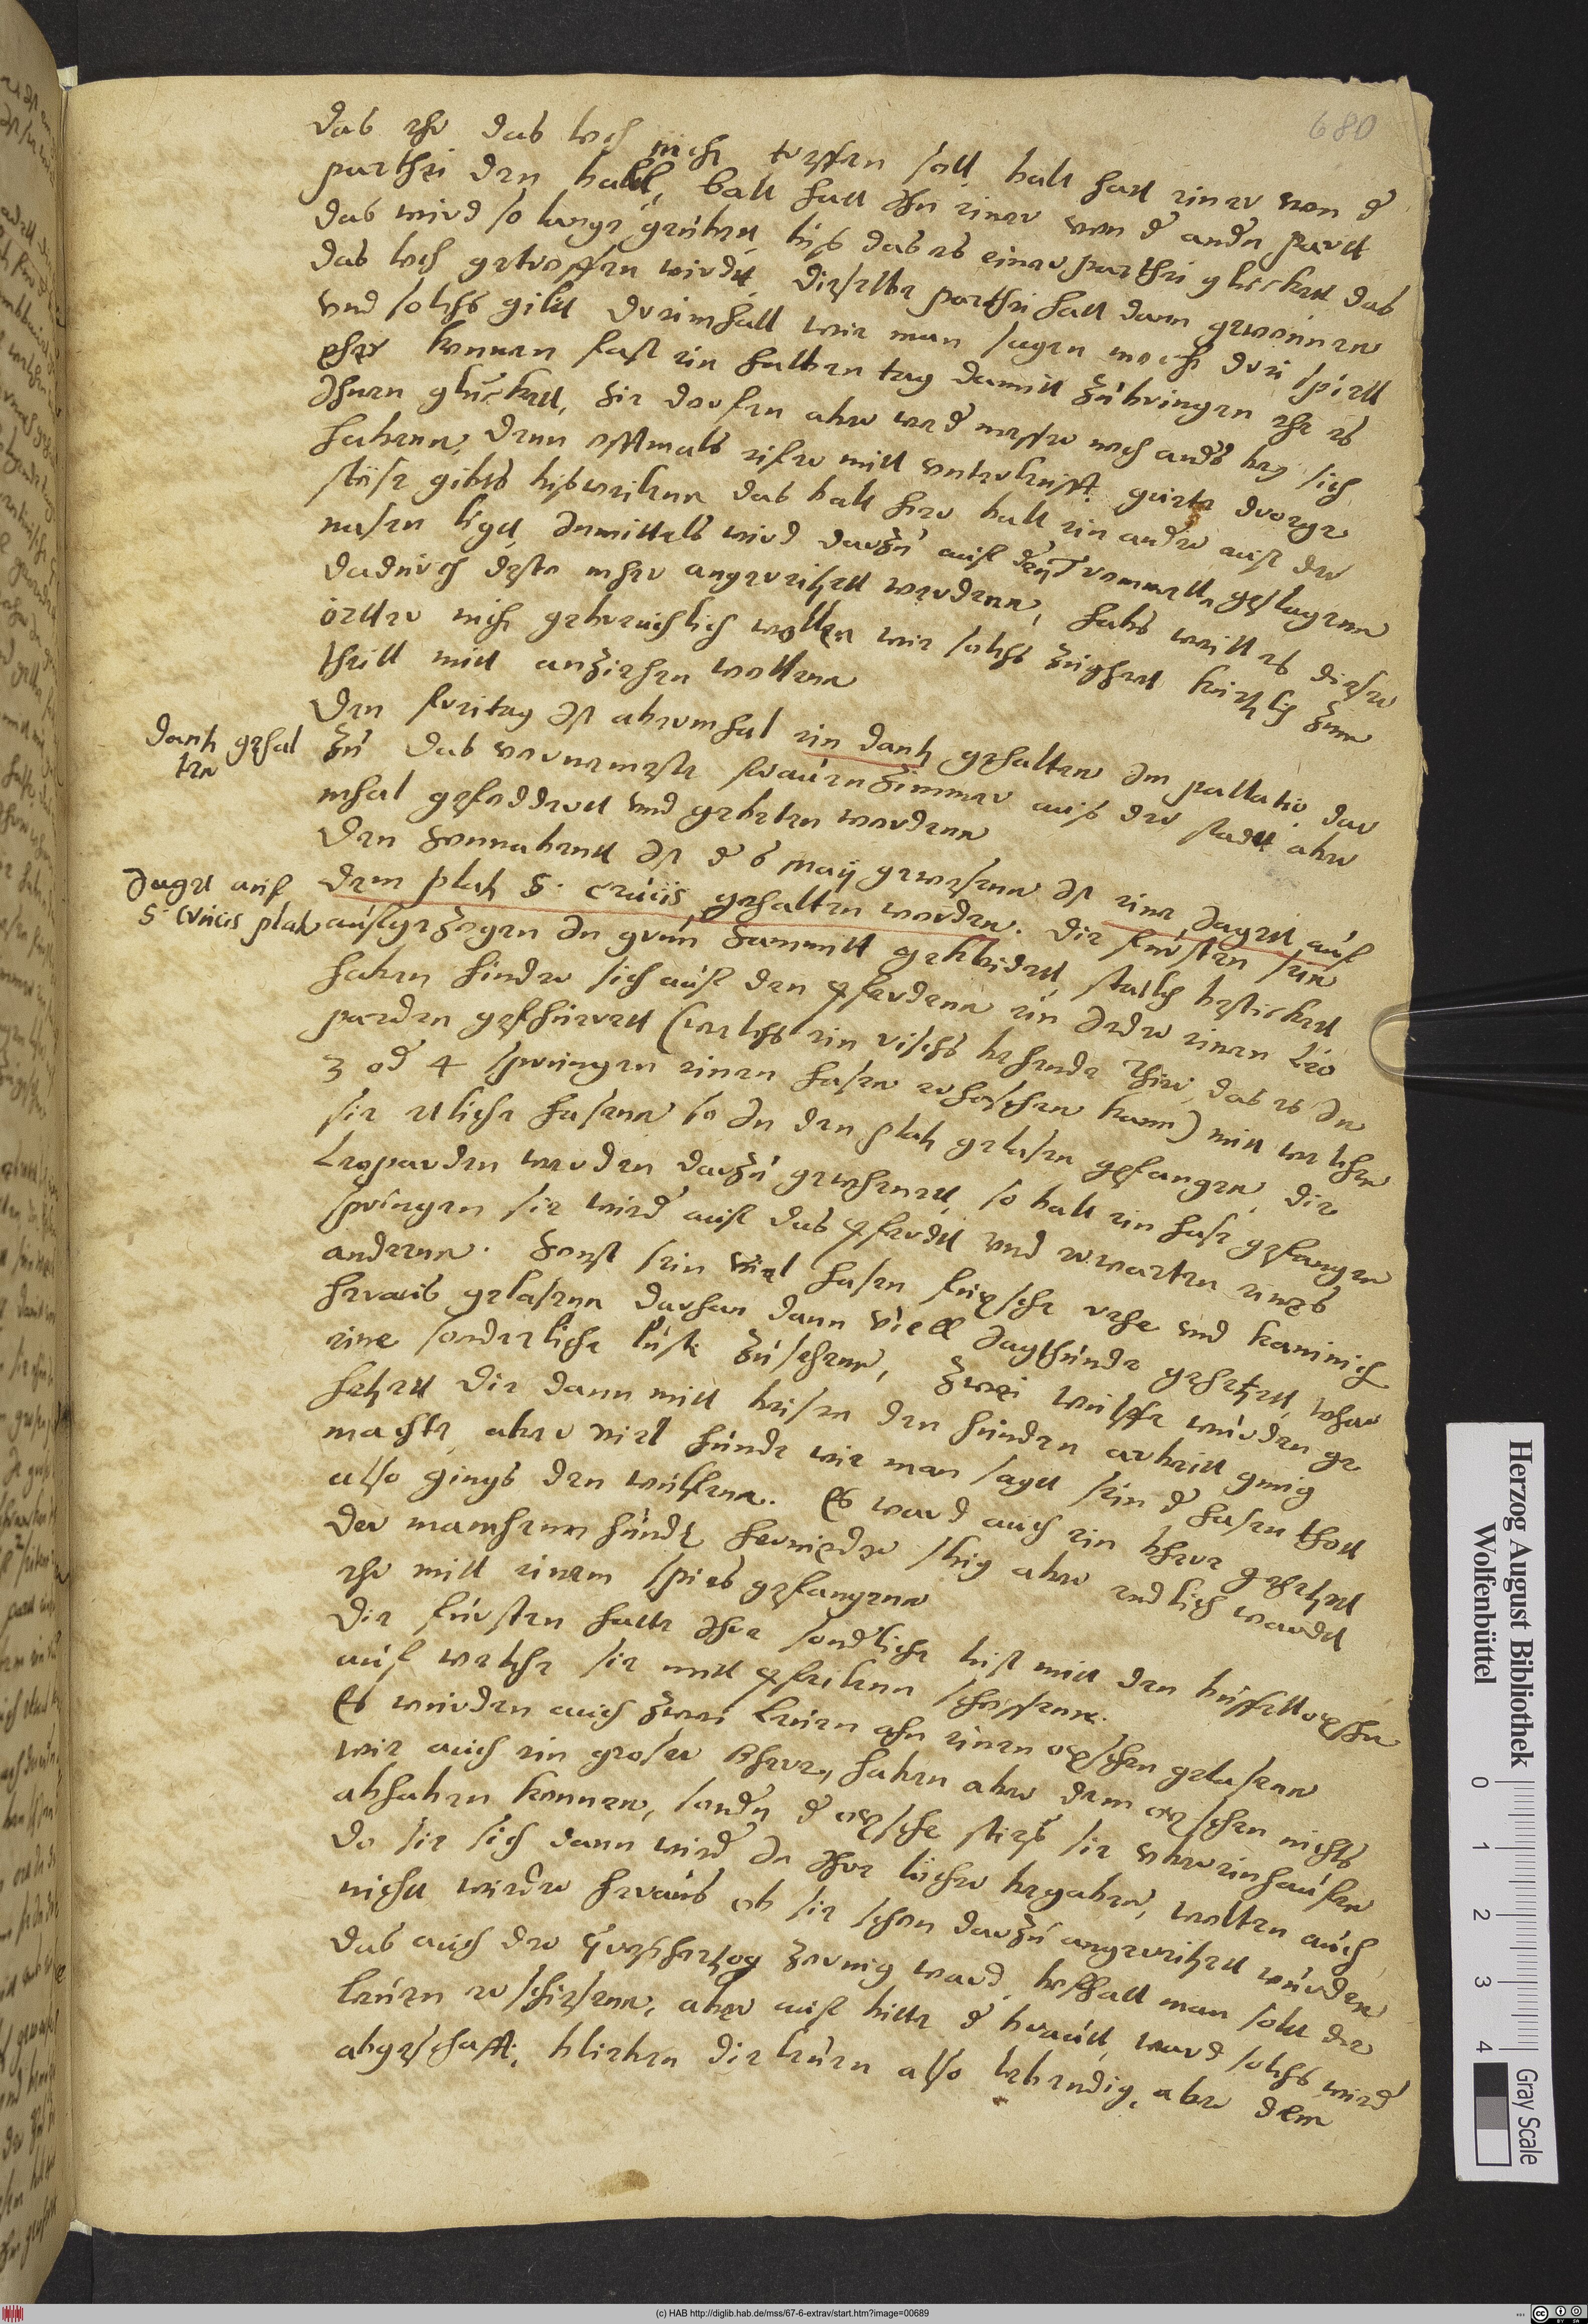 680
das ehr das loch nicht treffen soll, balt hatt einer von d
parthei den ball, balt hatt ihn einer von d andn partt
das wird so lange geübett, biß das es einer parthei glückett das
das loch getroffen wirdt, dieselbe parthei hatt dann gewonnen
und solchs gildt dreimhall wie man sagen mocht drei spiell
ehr konnen fast ein halben tag damitt zubringen ehe es
ihnen glückett, sie dorfen aber wed messer noch ands bey sich
habenn, denn offtmals eifer mitt unterleufft. guete drorge
stöse gibts bisweilenn das balt hier balt ein ander auf der
nasen ligt, inmittels wird darzu auf den Trommelln geslagenn
dadurch desto mher angereitzett werdenn, habs weill es dieser
örtter nicht gebreuchlich wollen wir solchs zugesett kürtzlich zum
theill mitt anziehen wollenn
Den freitag ist abermhal ein dantz gehalten im pallatio dar
zu das vornemeste frauenzimmer aus der stadtt aber
mhal gefoddertt und gebeten wordenn
Dantz gehal
ten
Den Sonnabentt ist d 6 maij gewesenn ist eine Jagett auf
dem platz S. crucis gehalten worden. Die fursten sein
Jagett auf
S. crucis platz
aufgezogen in grun Sammitt gekleidett, statlich bestickett
haben hinder sich auf den pferdenn ein Jeder einen Leo
parden gefhürett (welchs ein rischs behende thir, das es in
3 od 4 sprüngen einen hasen erhaschen kann) mitt welchen
sie etliche hasenn so in den platz gelasen gefangen, die
Leoparden werden darzu gewehnett, so balt ein hase gefangen
springen sie wird auf das pferdt und erwarten eines
anderenn. Sonst sein viel hasen füchse rehe und kaninich
heraus gelasenn darhan dann viell Jagthunde gehetzett, whar
eine sonderliche lust zusehenn, Zwei wulffe wurden ge
hetzett die dann mitt beisen den hunden arbeitt gnug
machte, aber viel hunde wie man sagtt sein d hasen thott
also gings den wulfenn. Es ward auch ein bhere gehetzett
der mannhenn hundt hernieder schlug aber endlich wardt
ehr mitt einem spies gefangenn
Die fürsten hatte ihre sondliche lust mitt den büffellochsen
auf welche sie mitt pfeilenn schossenn.
Es wurden auch zwei leuen ahn einen ochsen gelasenn
wie auch ein groser Bhere, haben aber dem ochsen nichts
abhaben konnen, sondn d ochse sties sie ubereinhaufen
do sie sich dann wird in ihre löcher begaben, wolten auch
nichtt wieder heraus ob sie schon darzu angereitzett wurden
das auch der Grosherzog zornig ward, befhall man soltt die
leuen erschiesenn, aber auf bitte d brautt, ward solchs wird
abgeschafft, blieben die leuen also lebendig, aber dem
Herzog August Bibliothek
Wolfenbüttel
0 1 2 3 4
Gray Scale
(c) HAB http://diglib.hab.de/mss/67-6-extrav/start.htm?image=00689